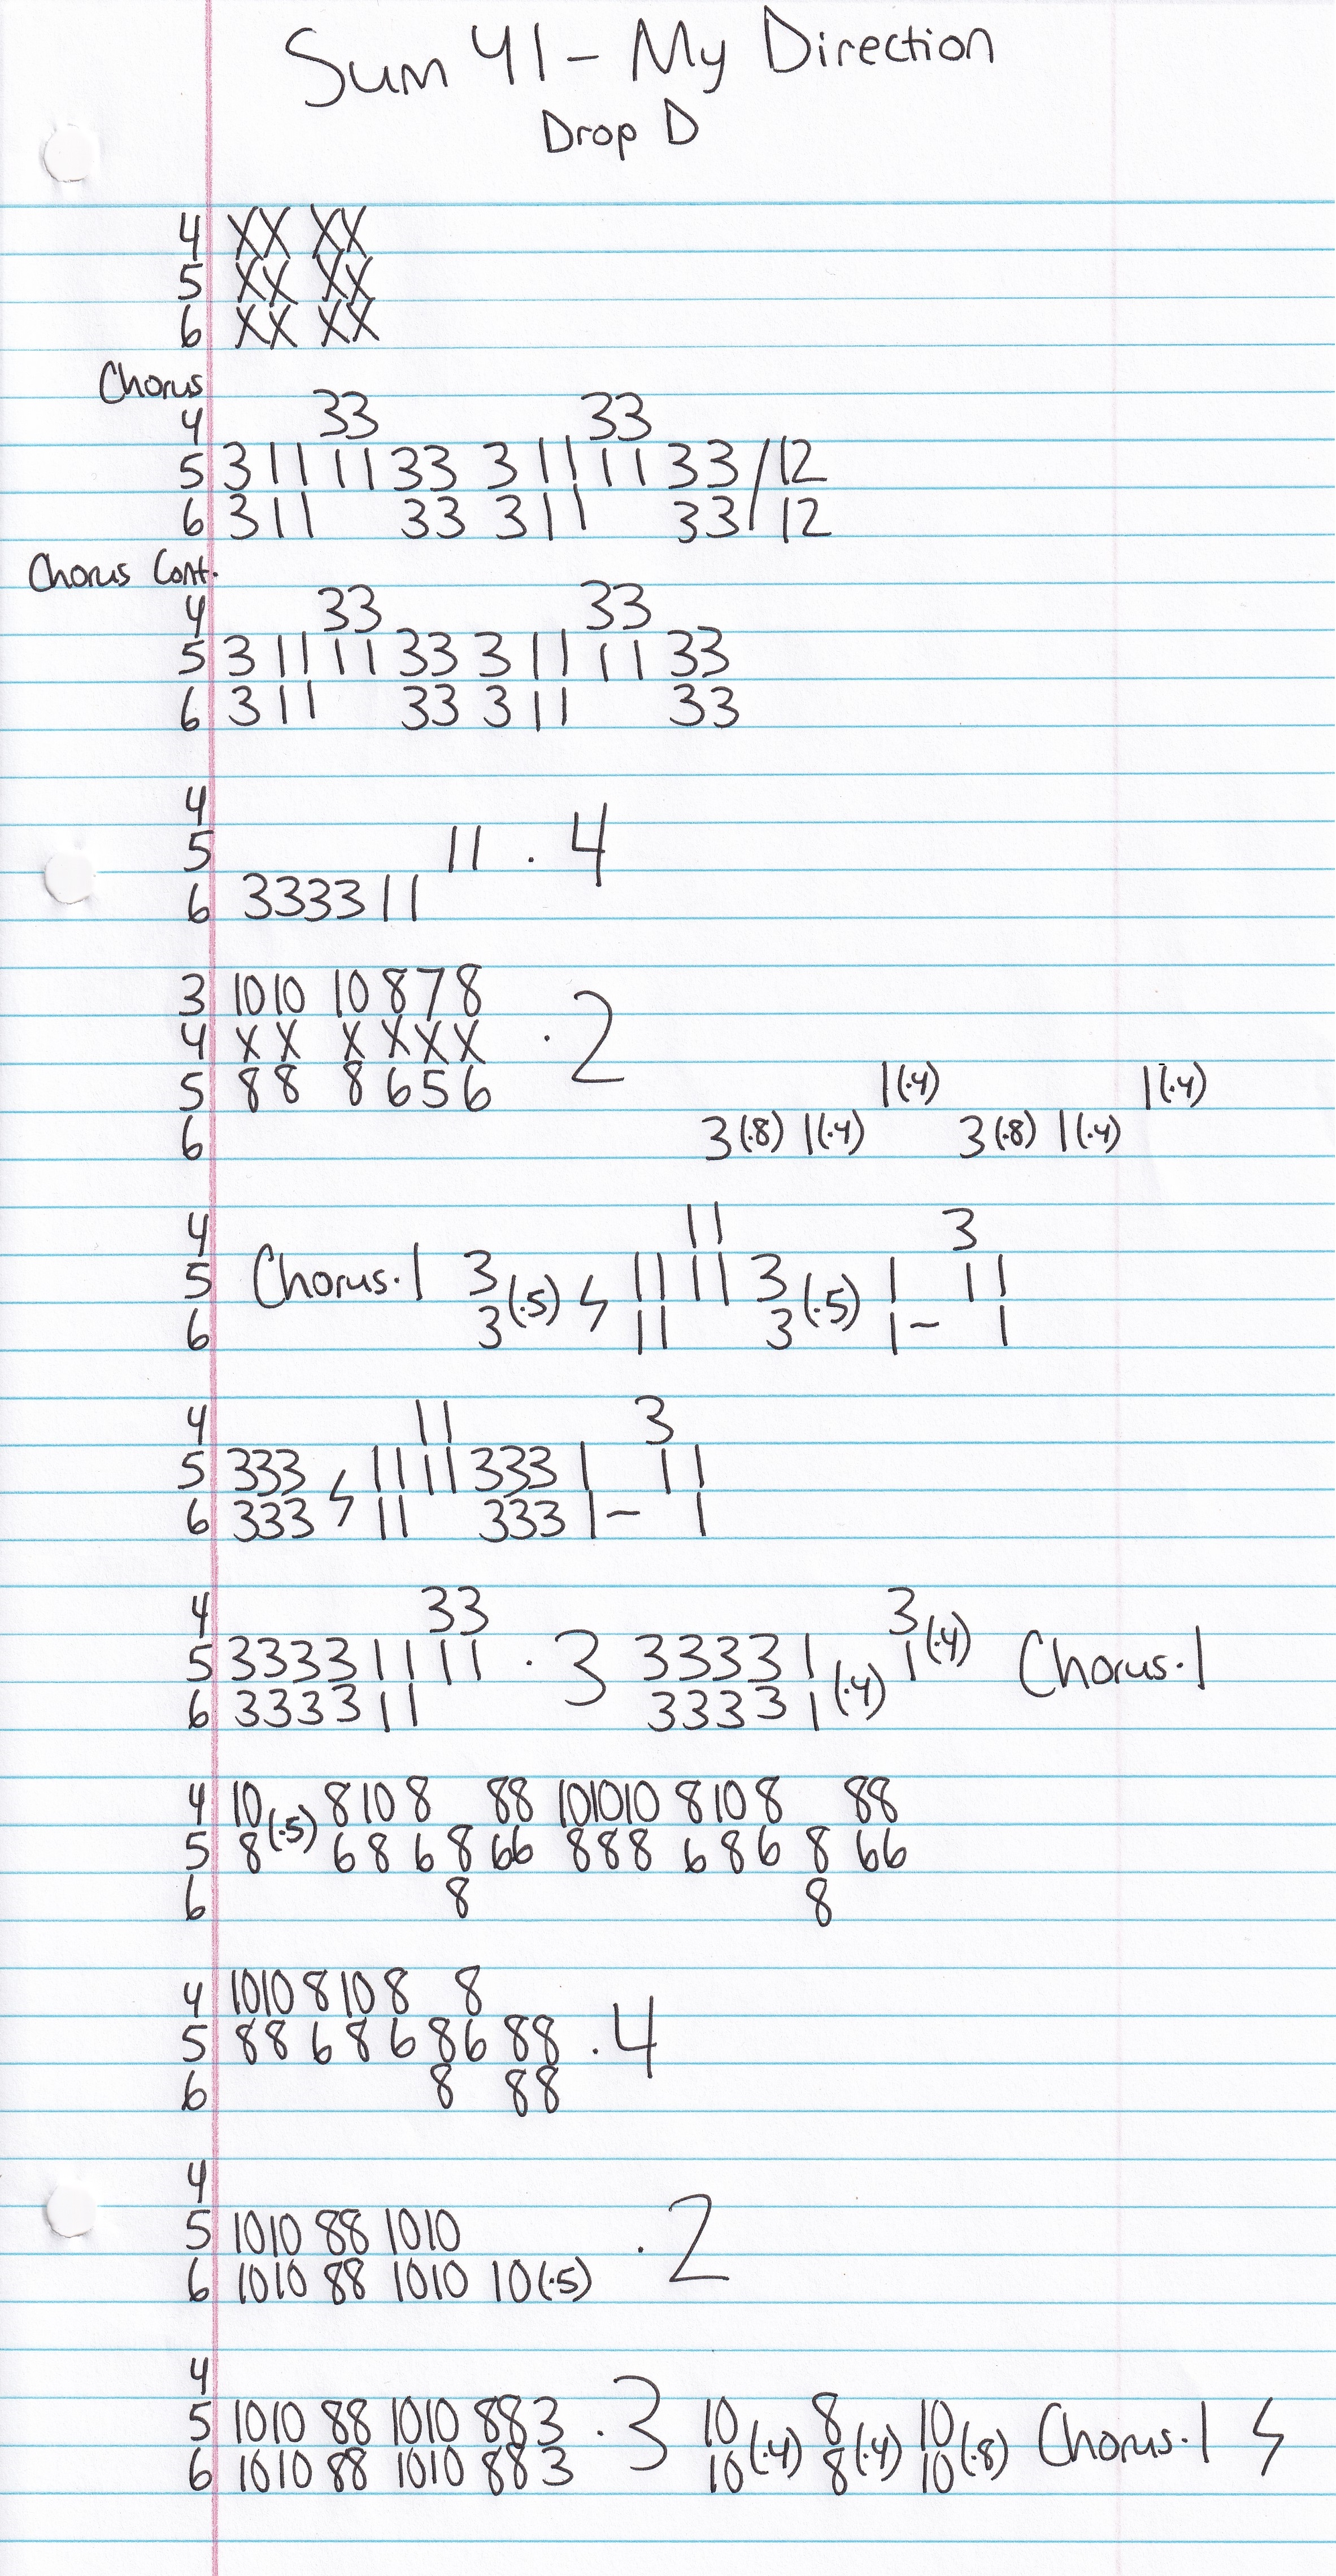 Sum 41 - My Direction
Drop D
4 XX XX
5 XX XX
6 XX XX
Chorus
4 33 33
5 3 11 11 33 3 11 11 33 / 12
6 3 11 33 3 11 33 / 12
Chorus Cont.
4 33 33
5 3 11 11 33 3 11 11 33
6 3 11 33 3 11 33
4
5 11 · 4
6 3333 11
3 1010 10 8 7 8
4 X X X X X X · 2
5 8 8 8 6 5 6 1(·4) 1(·4)
6 3(·8) 1(·4) 3(·8) 1(·4)
4 11 3
5 Chorus·1 3 (·5) ϟ 11 11 3 (·5) 1 1 1
6 3 11 3 1 – 1
4 11 3
5 333 ϟ 11 11 333 1 1 1
6 333 11 333 1 – 1
4 33 3
5 3333 11 11 · 3 3333 1 (·4) 1 (·4) Chorus·1
6 3333 11 3333 1
4 10 (·5) 8 10 8 88 101010 8 10 8 88
5 8 6 8 6 8 66 888 6 8 6 8 66
6 8 8
4 1010 8 10 8 8
5 88 6 8 6 8 6 88 · 4
6 8 88
4
5 1010 88 1010 · 2
6 1010 88 1010 10(·5)
4
5 1010 88 1010 883 · 3 10 (·4) 8 (·4) 10 (·8) Chorus·1 ϟ
6 1010 88 1010 883 10 8 10